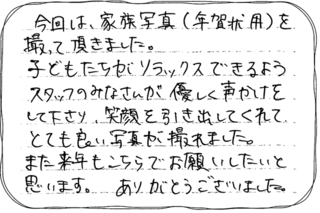 今回は、家族写真(年賀状用)を
撮って頂きました。
子どもたちがリラックスできるよう
スタッフのみなさんが優しく声かけを
して下さり、笑顔を引き出してくれて
とても良い写真が撮れました。
また来年もこちらでお願いしたいと
思います。 ありがとうございました。